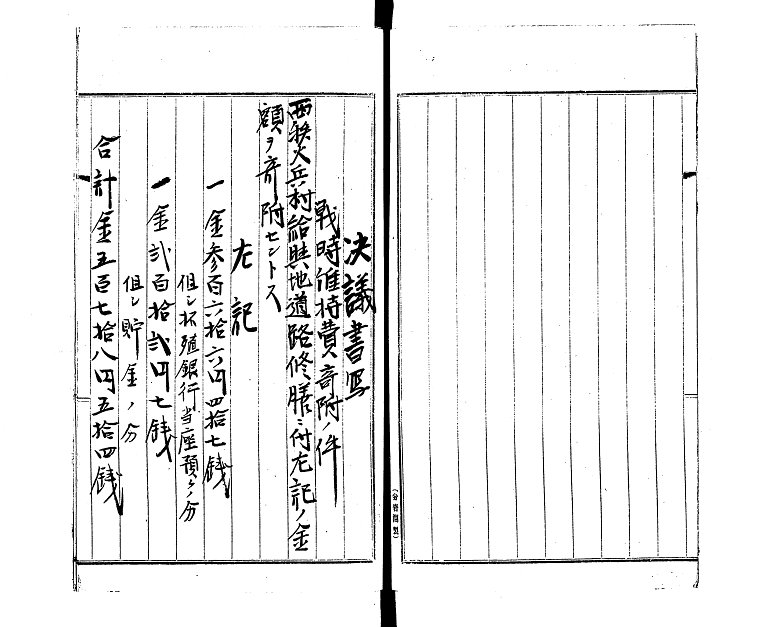 決議書写
戦時維持費寄附ノ件
西秩火兵村給與地道路修膳ニ付左記ノ金
額ヲ寄附セントス
左記
一金参百六拾六円四拾七銭
但シ拓殖銀行当座預ケノ分
一金弐百拾弐円七銭
但シ貯金ノ分
合計金五百七拾八円五拾四銭